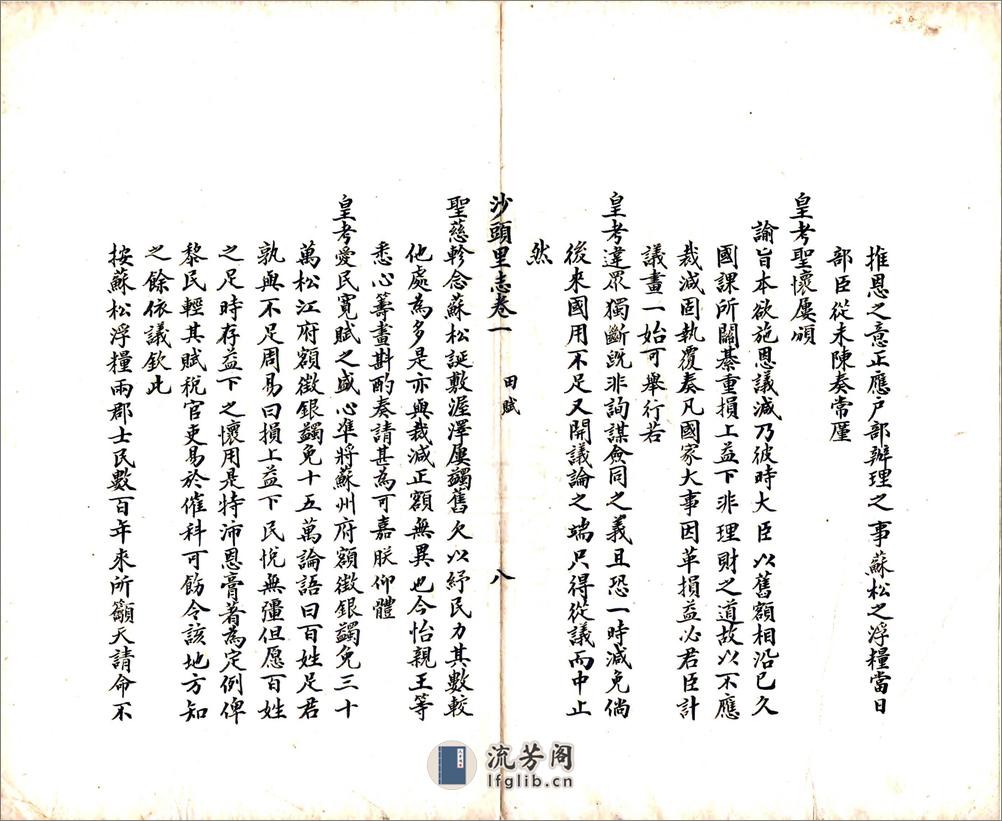 推恩之意正應户部辦理之事蘇松之浮糧當日
部臣從未陳奏常廑
皇考聖懷屢頒
諭旨本欲施恩議減乃彼時大臣以舊額相沿已久
國課所關綦重損上益下非理財之道故以不應
裁減固執覆奏凡國家大事因革損益必君臣計
議畫一始可舉行若
皇考違眾獨斷既非詢謀僉同之義且恐一時減免倘
後來國用不足又開議論之端只得從議而中止
然
沙頭里志卷一 田賦 八
聖慈軫念蘇松誕敷渥澤屢蠲舊欠以紓民力其數較
他處為多是亦與裁減正額無異也今怡親王等
悉心籌畫斟酌奏請甚為可嘉朕仰體
皇考愛民寬賦之盛心准將蘇州府額徵銀蠲免三十
萬松江府額徵銀蠲免十五萬論語曰百姓足君
孰與不足周易曰損上益下民悅無疆但愿百姓
之足時存益下之懷用是特沛恩膏著為定例俾
黎民輕其賦稅官吏易於催科可飭令該地方知
之餘依議欽此
按蘇松浮糧兩郡士民數百年來所籲天請命不
流芳阁
lfglib.cn